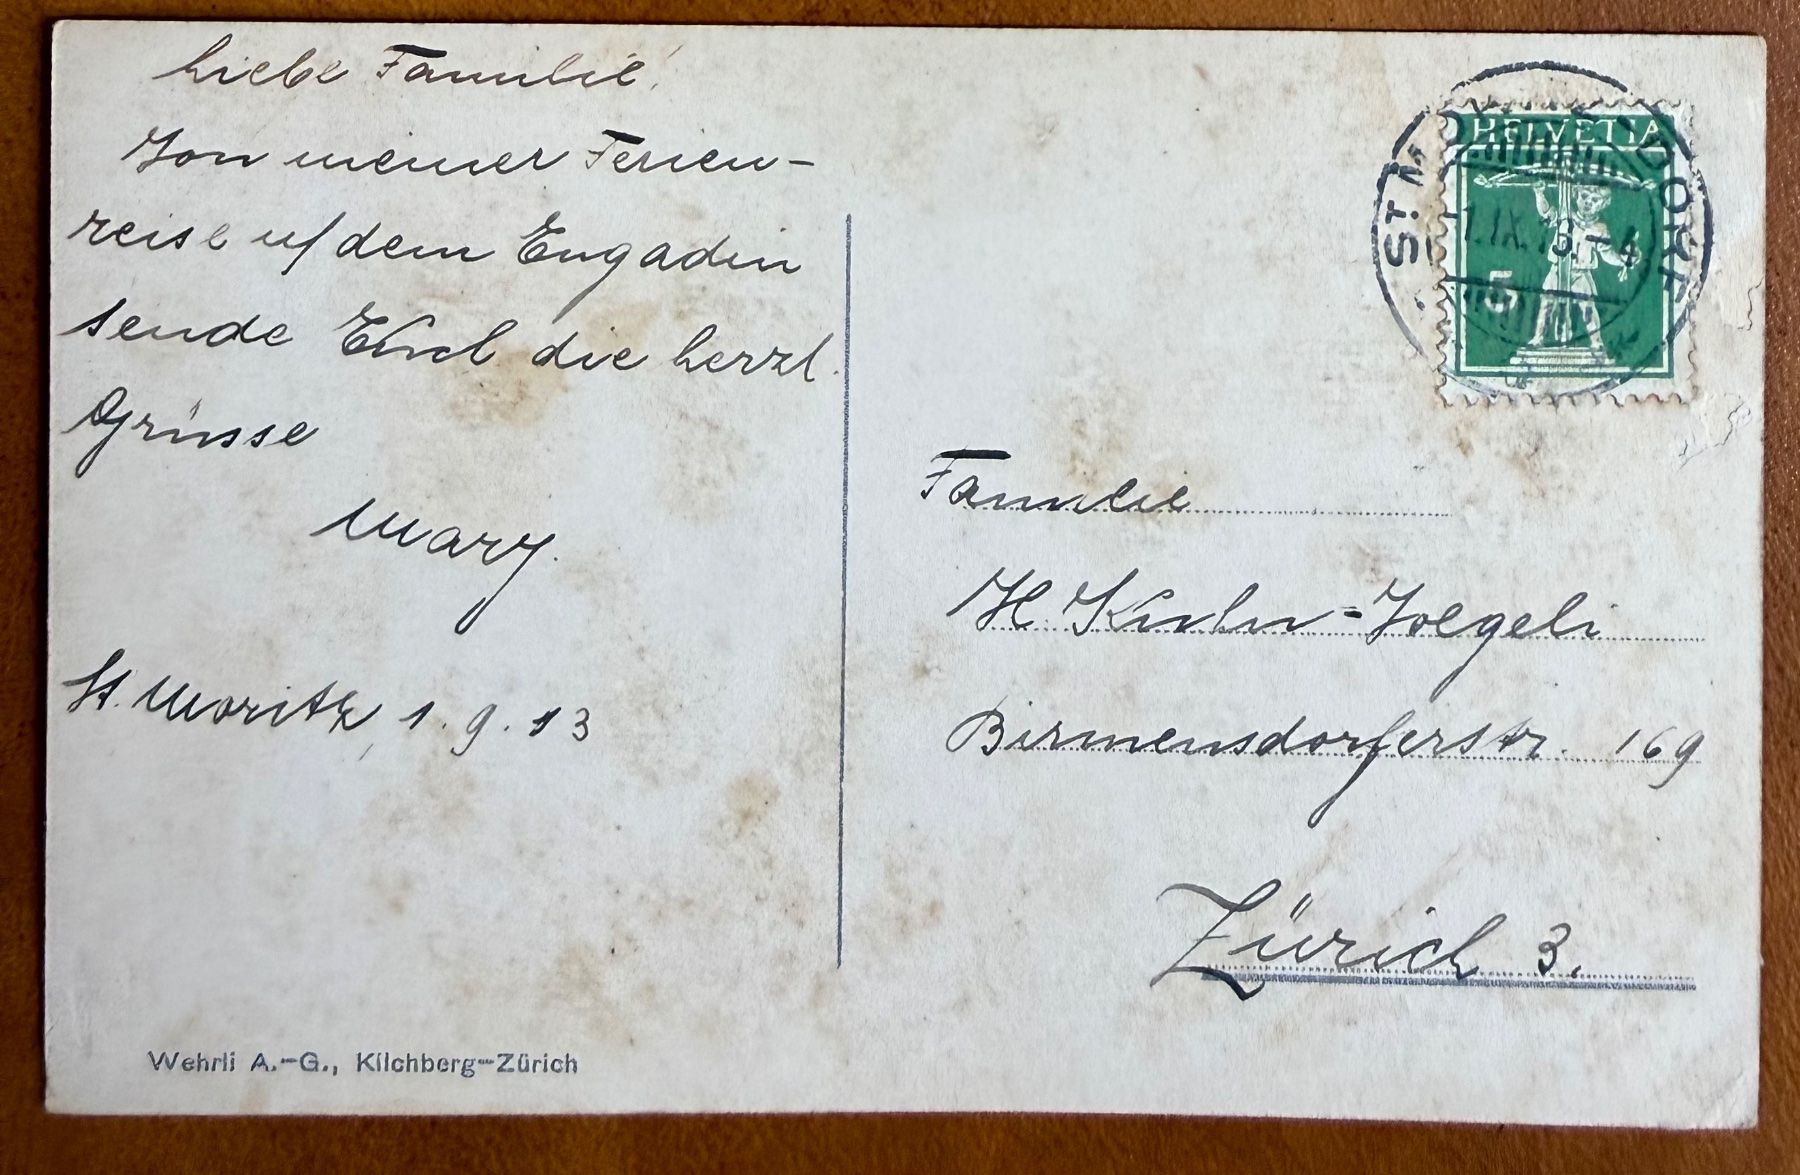 Liebe Familie!
Von meiner Ferien-
reise u/ dem Engadin
sende Euch die herzl.
Grüsse
Mary.
St. Moritz, 1.9.13
Wehrli A.-G., Kilchberg-Zürich
HELVETIA
5
ST. MORITZ-DORF
1.IX.13.-4
Familie
H. Kuhn-Voegeli
Birmensdorferstr. 169
Zürich 3.